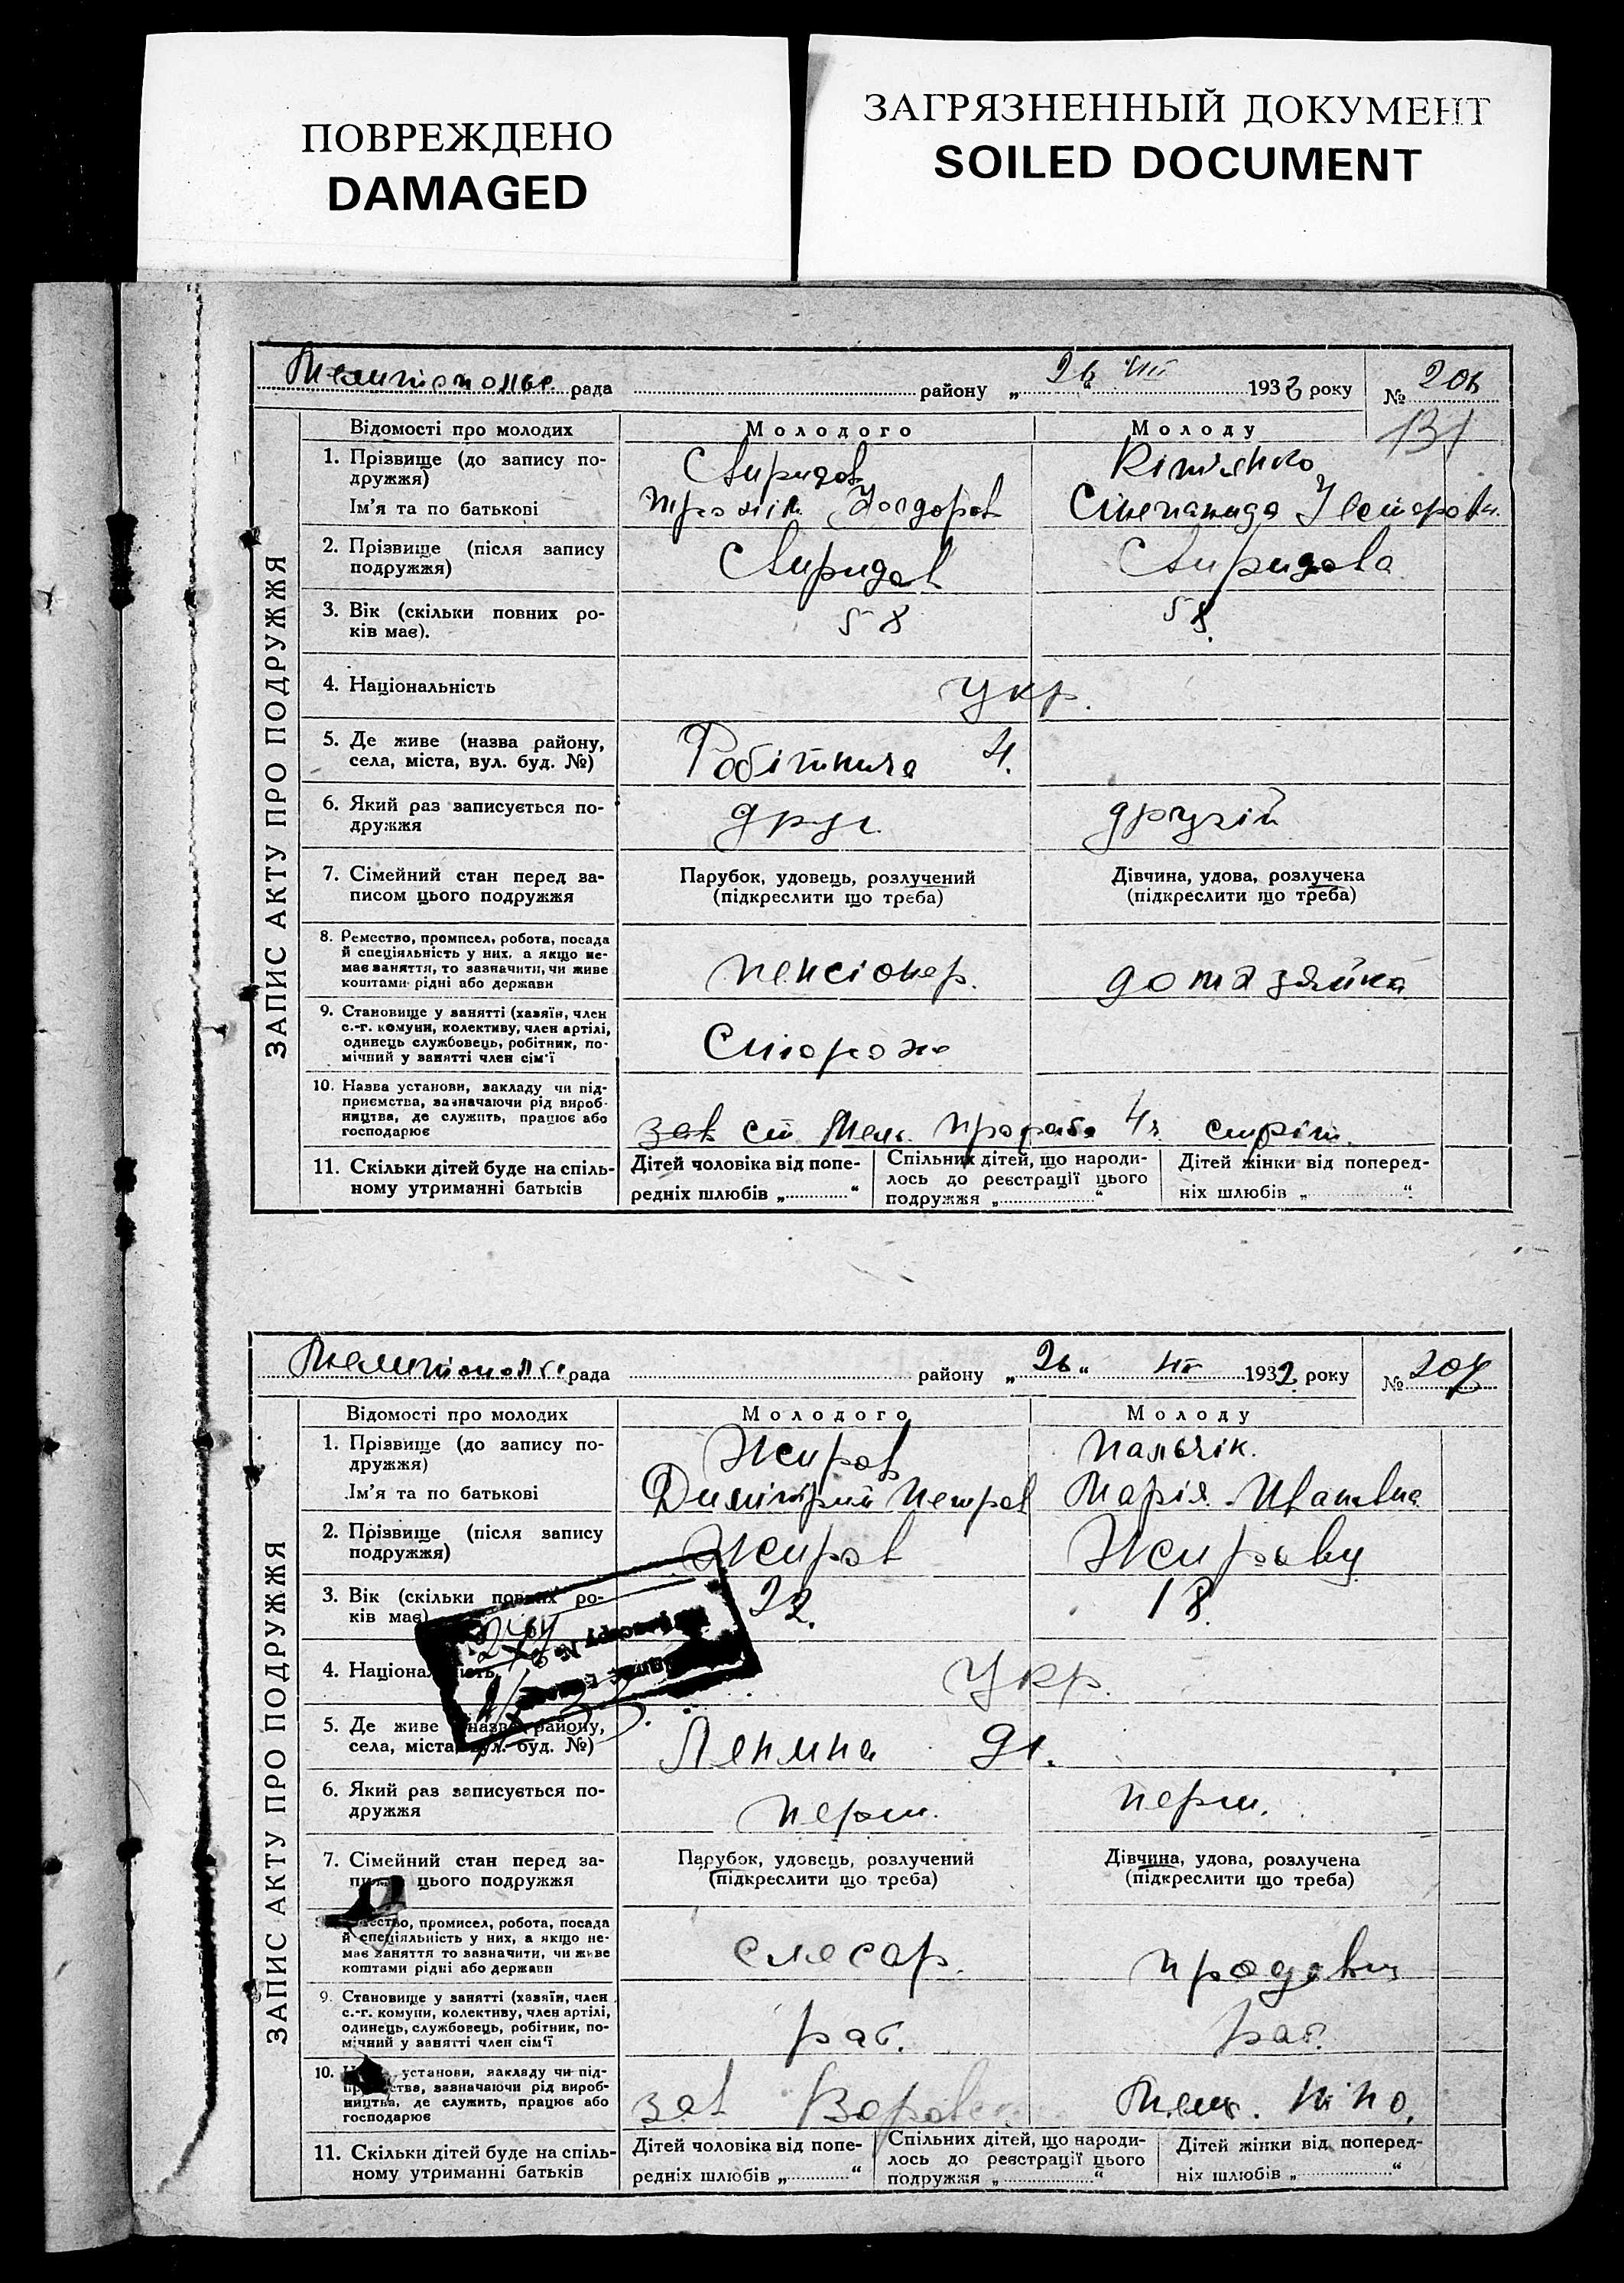 ПОВРЕЖДЕНО
DAMAGED
ЗАГРЯЗНЕННЫЙ ДОКУМЕНТ
SOILED DOCUMENT
рада району „26“ VIII 1932 року № 206
131
ЗАПИС АКТУ ПРО ПОДРУЖЖЯ
Відомості про молодих Молодого Молоду
1. Прізвище (до запису по-
дружжя)
Свиридов
Ім'я та по батькові
2. Прізвище (після запису
подружжя)
Свиридов Свиридова
3. Вік (скільки повних ро-
ків має).
58 58.
4. Національність
укр.
5. Де живе (назва району,
села, міста, вул. буд. №)
Робітнича 4.
6. Який раз записується по-
дружжя
друг. другій
7. Сімейний стан перед за-
писом цього подружжя
Парубок, удовець, розлучений
(підкреслити що треба)
Дівчина, удова, розлучена
(підкреслити що треба)
8. Ремество, промисел, робота, посада
й спеціяльність у них, а якщо не-
має заняття, то зазначити, чи живе
коштами рідні або держави
пенсіонер.
9. Становище у занятті (хазяїн, член
с.-г. комуни, колективу, член артілі,
одинець службовець, робітник, по-
мічний у занятті член сім'ї
Сторож
10. Назва установи, закладу чи під-
приємства, зазначаючи рід вироб-
ництва, де служить, працює або
господарює
зав ст
11. Скільки дітей буде на спіль-
ному утриманні батьків
Дітей чоловіка від попе-
редніх шлюбів „ “
Спільних дітей, що народи-
лось до реєстрації цього
подружжя „ “
Дітей жінки від поперед-
ніх шлюбів „ “
рада району „26“ VIII 1932 року № 207
ЗАПИС АКТУ ПРО ПОДРУЖЖЯ
Відомості про молодих Молодого Молоду
1. Прізвище (до запису по-
дружжя)
Жиров Пальчік.
Ім'я та по батькові
Димітрий Петров Марія Ивановна
2. Прізвище (після запису
подружжя)
Жиров Жирову
3. Вік (скільки повних ро-
ків має)
22. 18.
4. Національність
Укр.
5. Де живе (назва району,
села, міста, вул. буд. №)
Ленина 91.
6. Який раз записується по-
дружжя
перш. перш.
7. Сімейний стан перед за-
писом цього подружжя
Парубок, удовець, розлучений
(підкреслити що треба)
Дівчина, удова, розлучена
(підкреслити що треба)
Ремество, промисел, робота, посада
й спеціяльність у них, а якщо не-
має заняття то зазначити, чи живе
коштами рідні або держави
слесар.
9. Становище у занятті (хазяїн, член
с.-г. комуни, колективу, член артілі,
одинець, службовець, робітник, по-
мічний у занятті член сім'ї
раб. раб.
10. установи, закладу чи під-
приємства, зазначаючи рід вироб-
ництва, де служить, працює або
господарює
зав
11. Скільки дітей буде на спіль-
ному утриманні батьків
Дітей чоловіка від попе-
редніх шлюбів „ “
Спільних дітей, що народи-
лось до реєстрації цього
подружжя „ “
Дітей жінки від поперед-
ніх шлюбів „ “